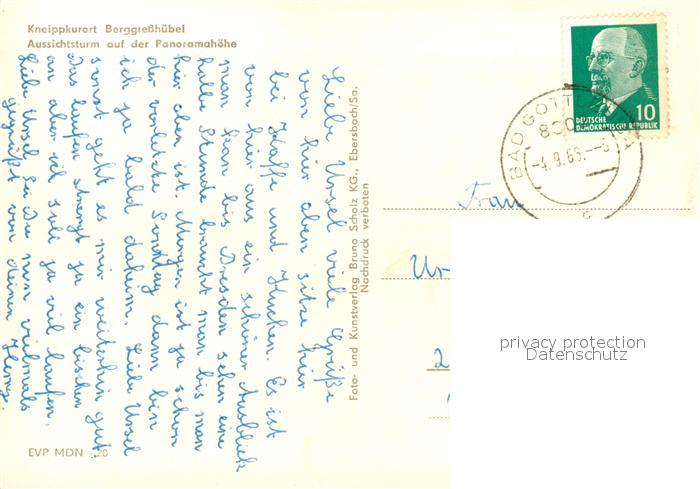 Kneippkurort Berggreßhübel
Aussichtsturm auf der Panoramahöhe
Liebe Ursel viele Grüße
von hier oben sitze hier
bei Kaffe und Kuchen. Es ist
von hier aus ein schöner Ausblick
man kan bis Dresden sehen eine
halbe Stunde braucht man bis man
hier oben ist. Morgen ist ja schon
der vorletzte Sonntag dann bin
ich ja bald daheim. Liebe Ursel
sonst geht es mir weiterhin gut
Das laufen strengt ja ein bischen
an aber ich soll ja viel laufen.
Liebe Ursel Sei Du nun vielmals
gegrüßt von deinen
EVP MDN 20
Foto- und Kunstverlag Bruno Scholz KG., Ebersbach/Sa.
Nachdruck verboten
10
DEUTSCHE
DEMOKRATISCHE REPUBLIK
BAD GOTTL
Frau
Ur
2
privacy protection
Datenschutz